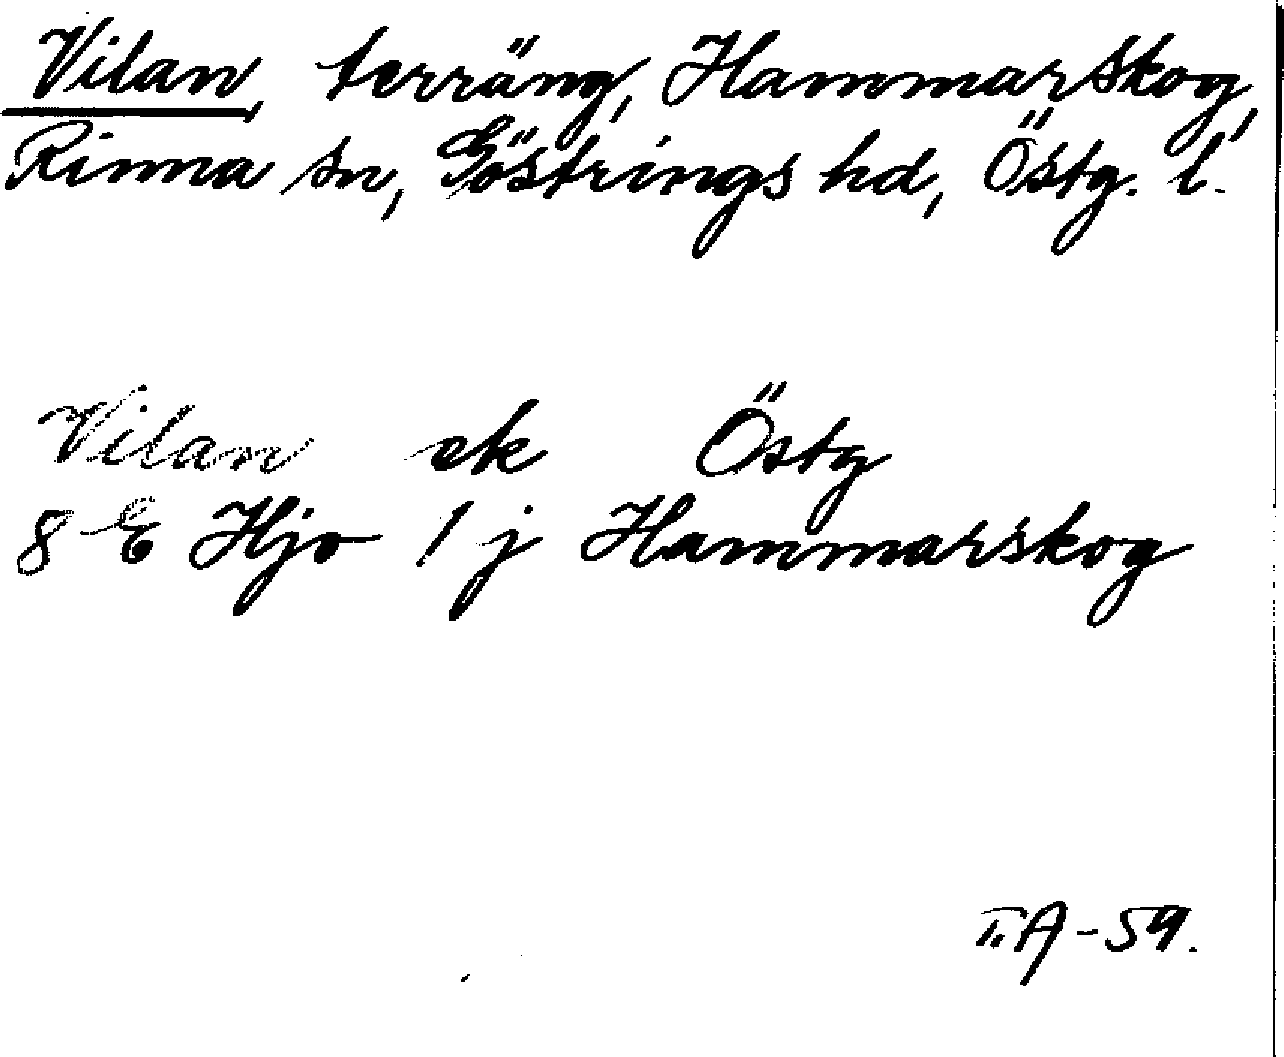 Vilan, terräng, Hammarskog,
Rinna sn, Göstrings hd, Östg. l.
Vilan ek Östg
8 E Hjo 1 j Hammarskog
I.A-59.